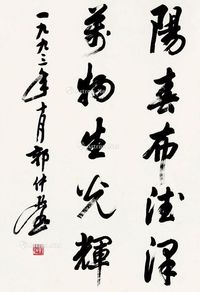 陽春布德澤
萬物生光輝
一九九三年十月郭仲選